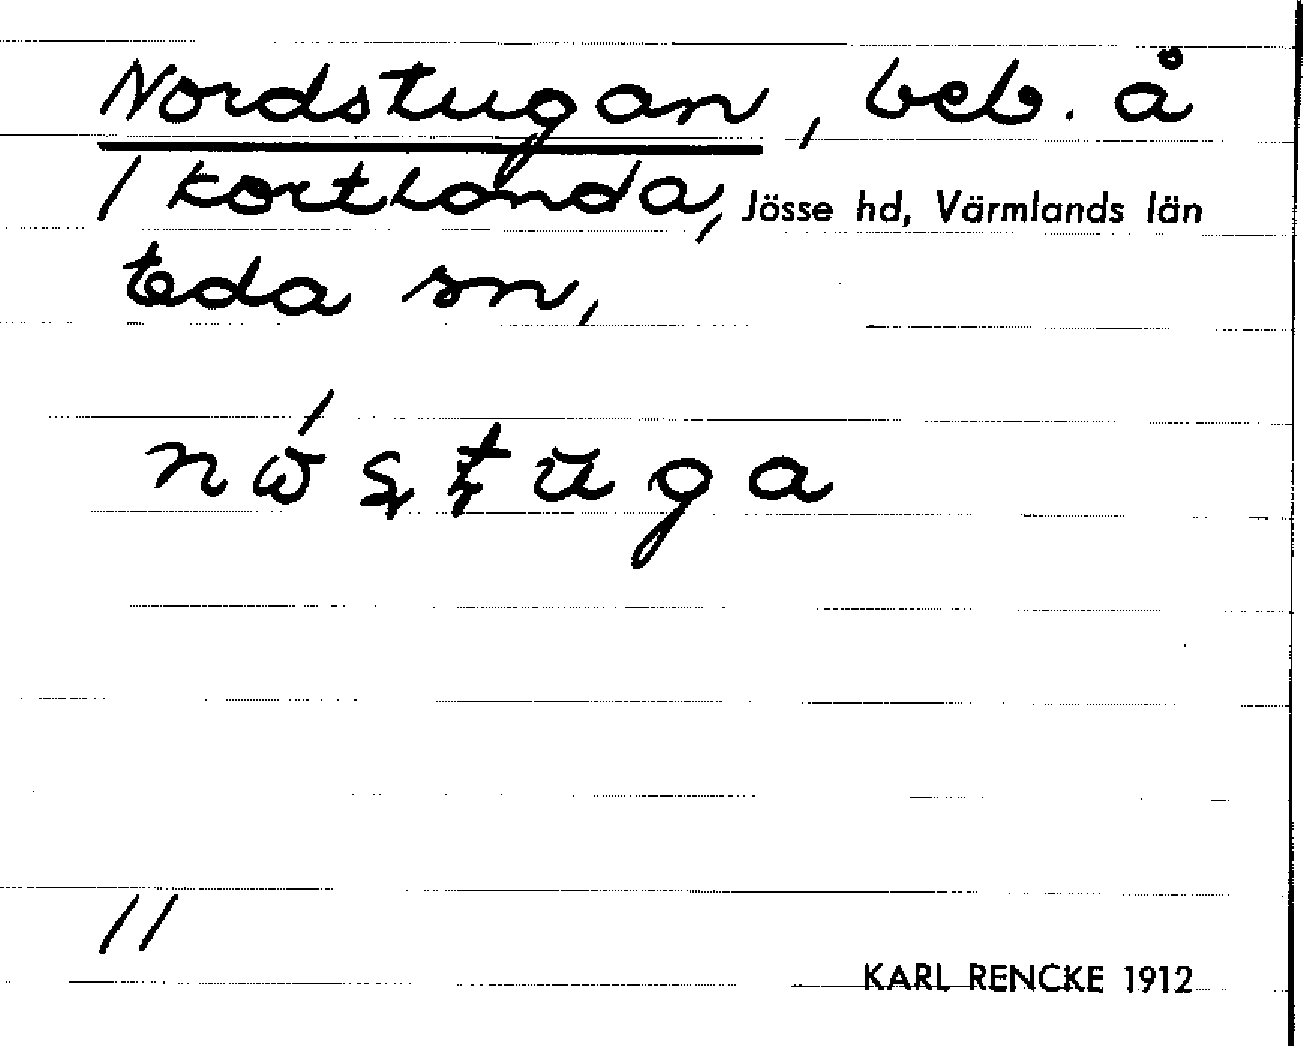 Nordstugan, beb. å
1 Kortlanda, Jösse hd, Värmlands län
Eda sn,
11
KARL RENCKE 1912